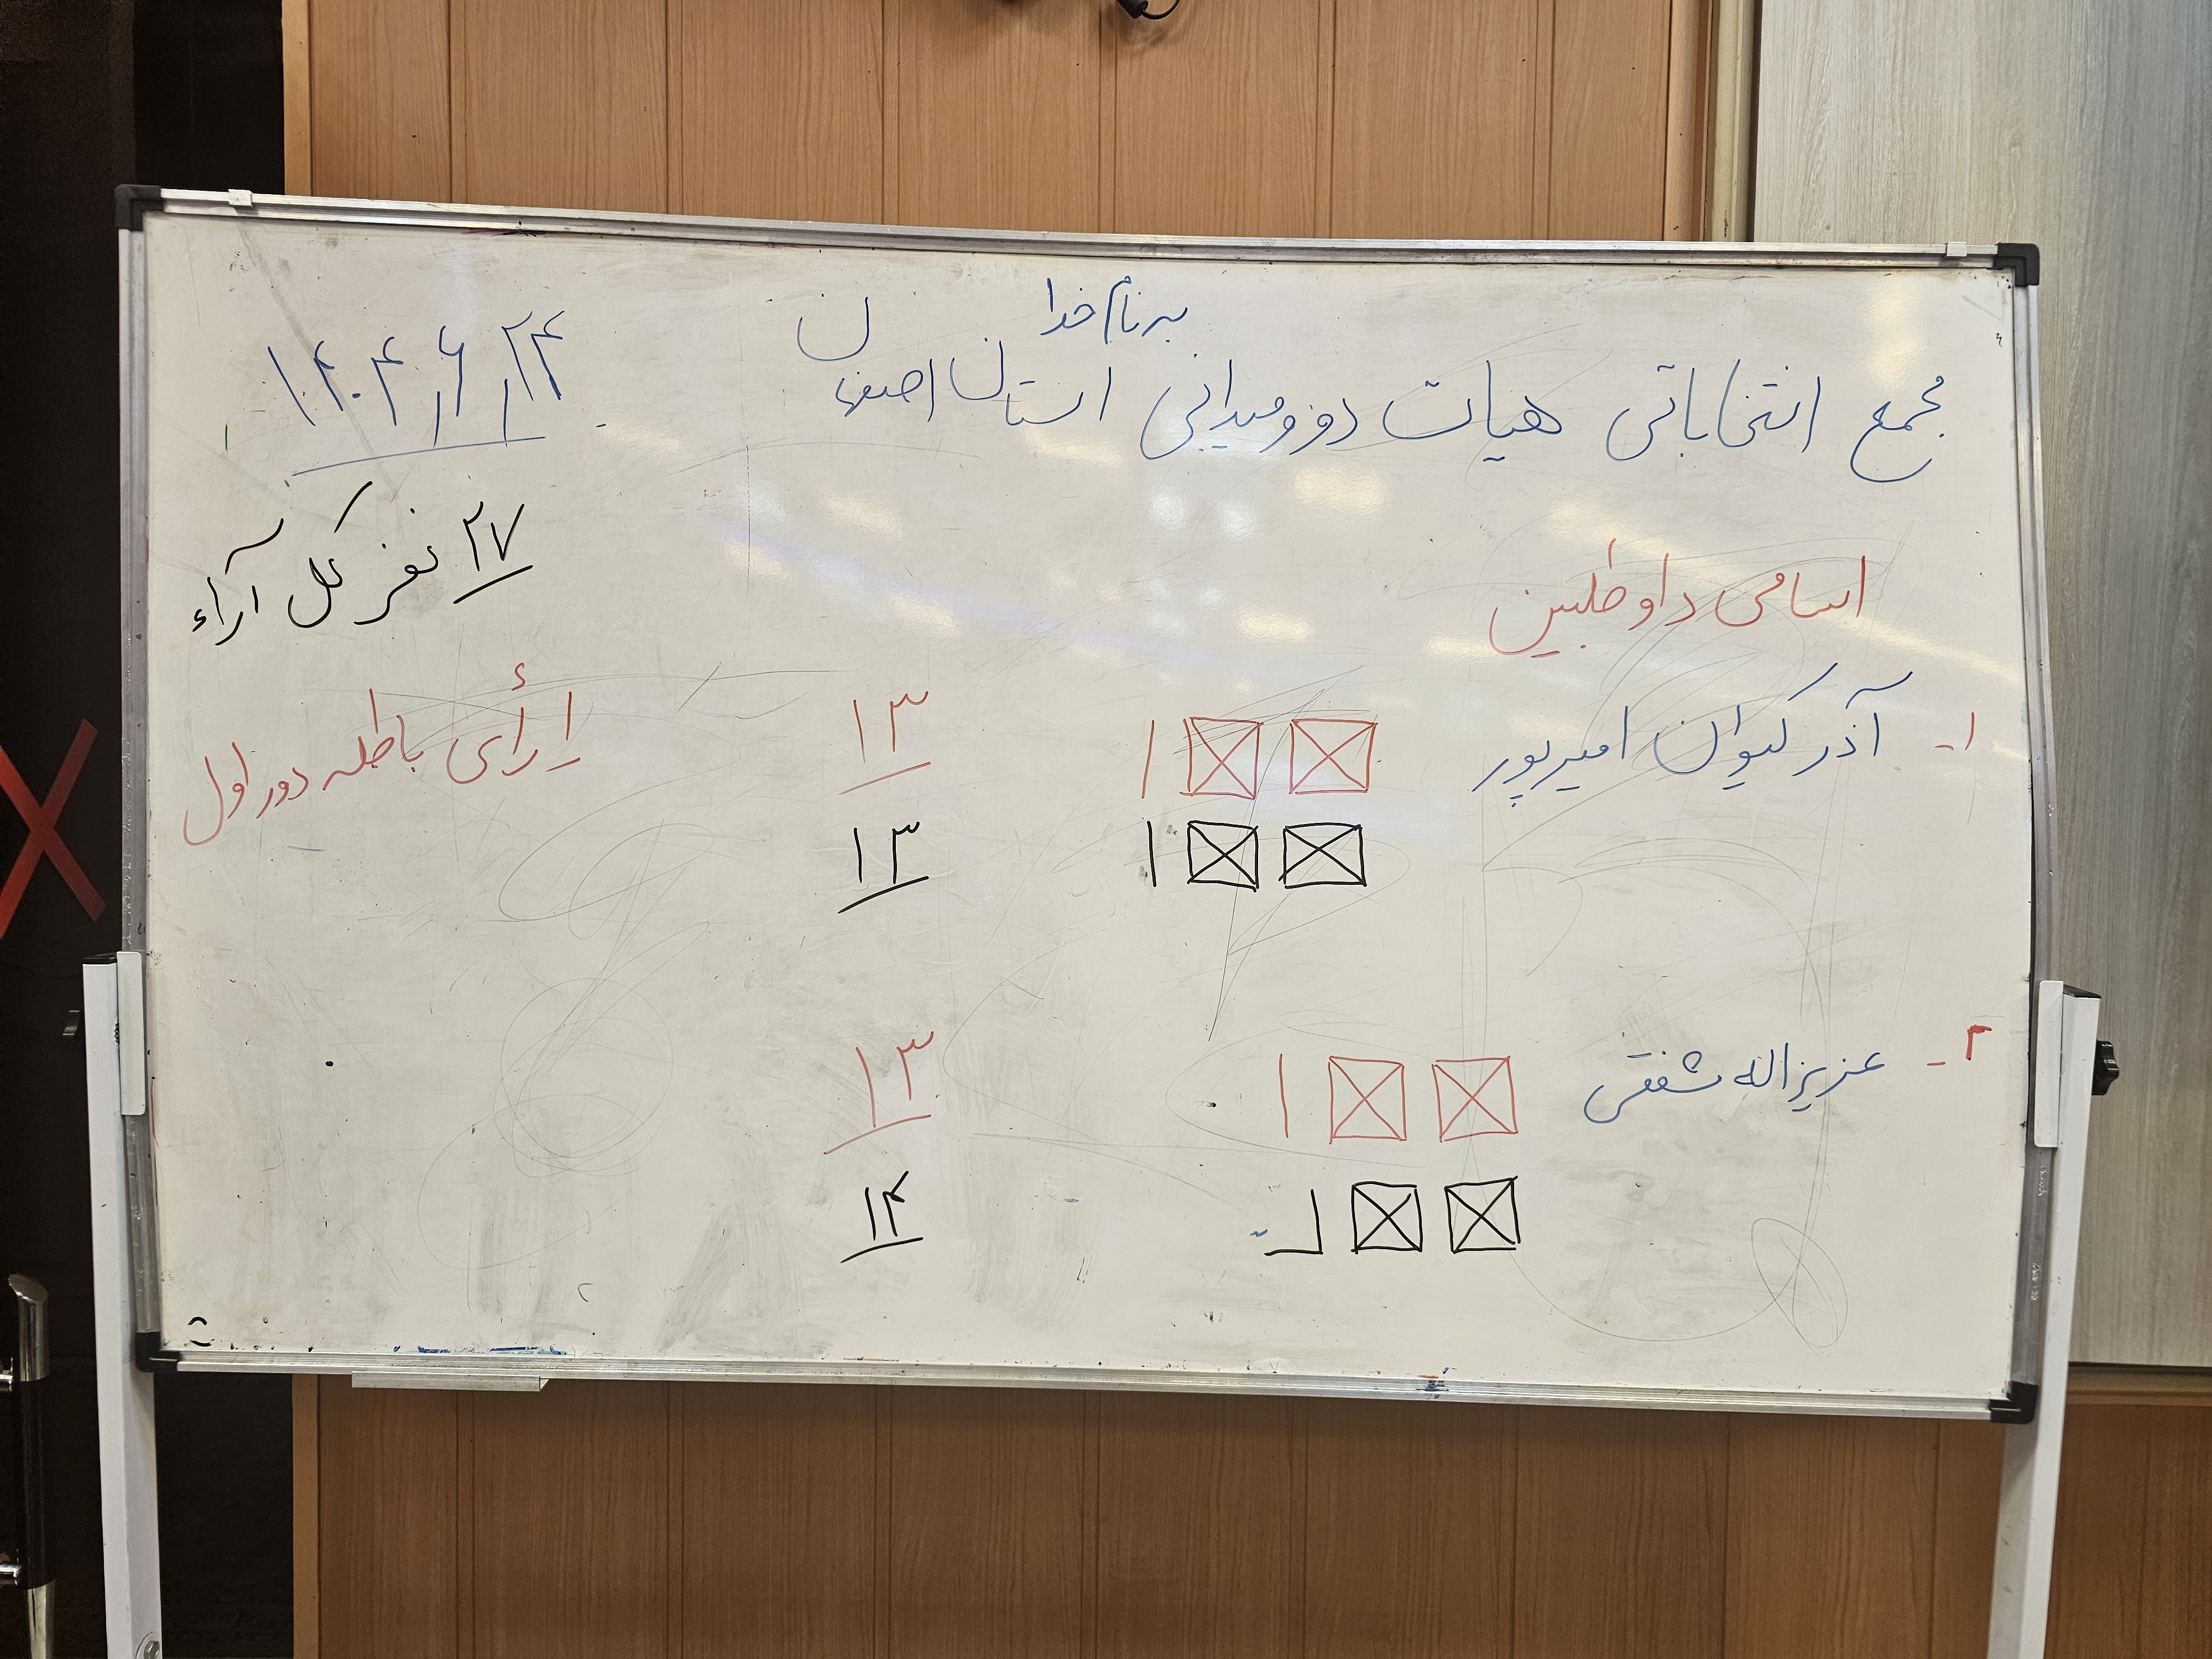 به نام خدا
مجمع انتخاباتی هیات دوومیدانی استان اصفهان
۱۴۰۴/۶/۲۴
۲۷ نفر کل آراء
اسامی داوطلبین
۱- آذر کیوان امیرپور
۱۳
۱ رأی باطله دور اول
۱۳
۲- عزیزاله شفقی
۱۳
۱۴